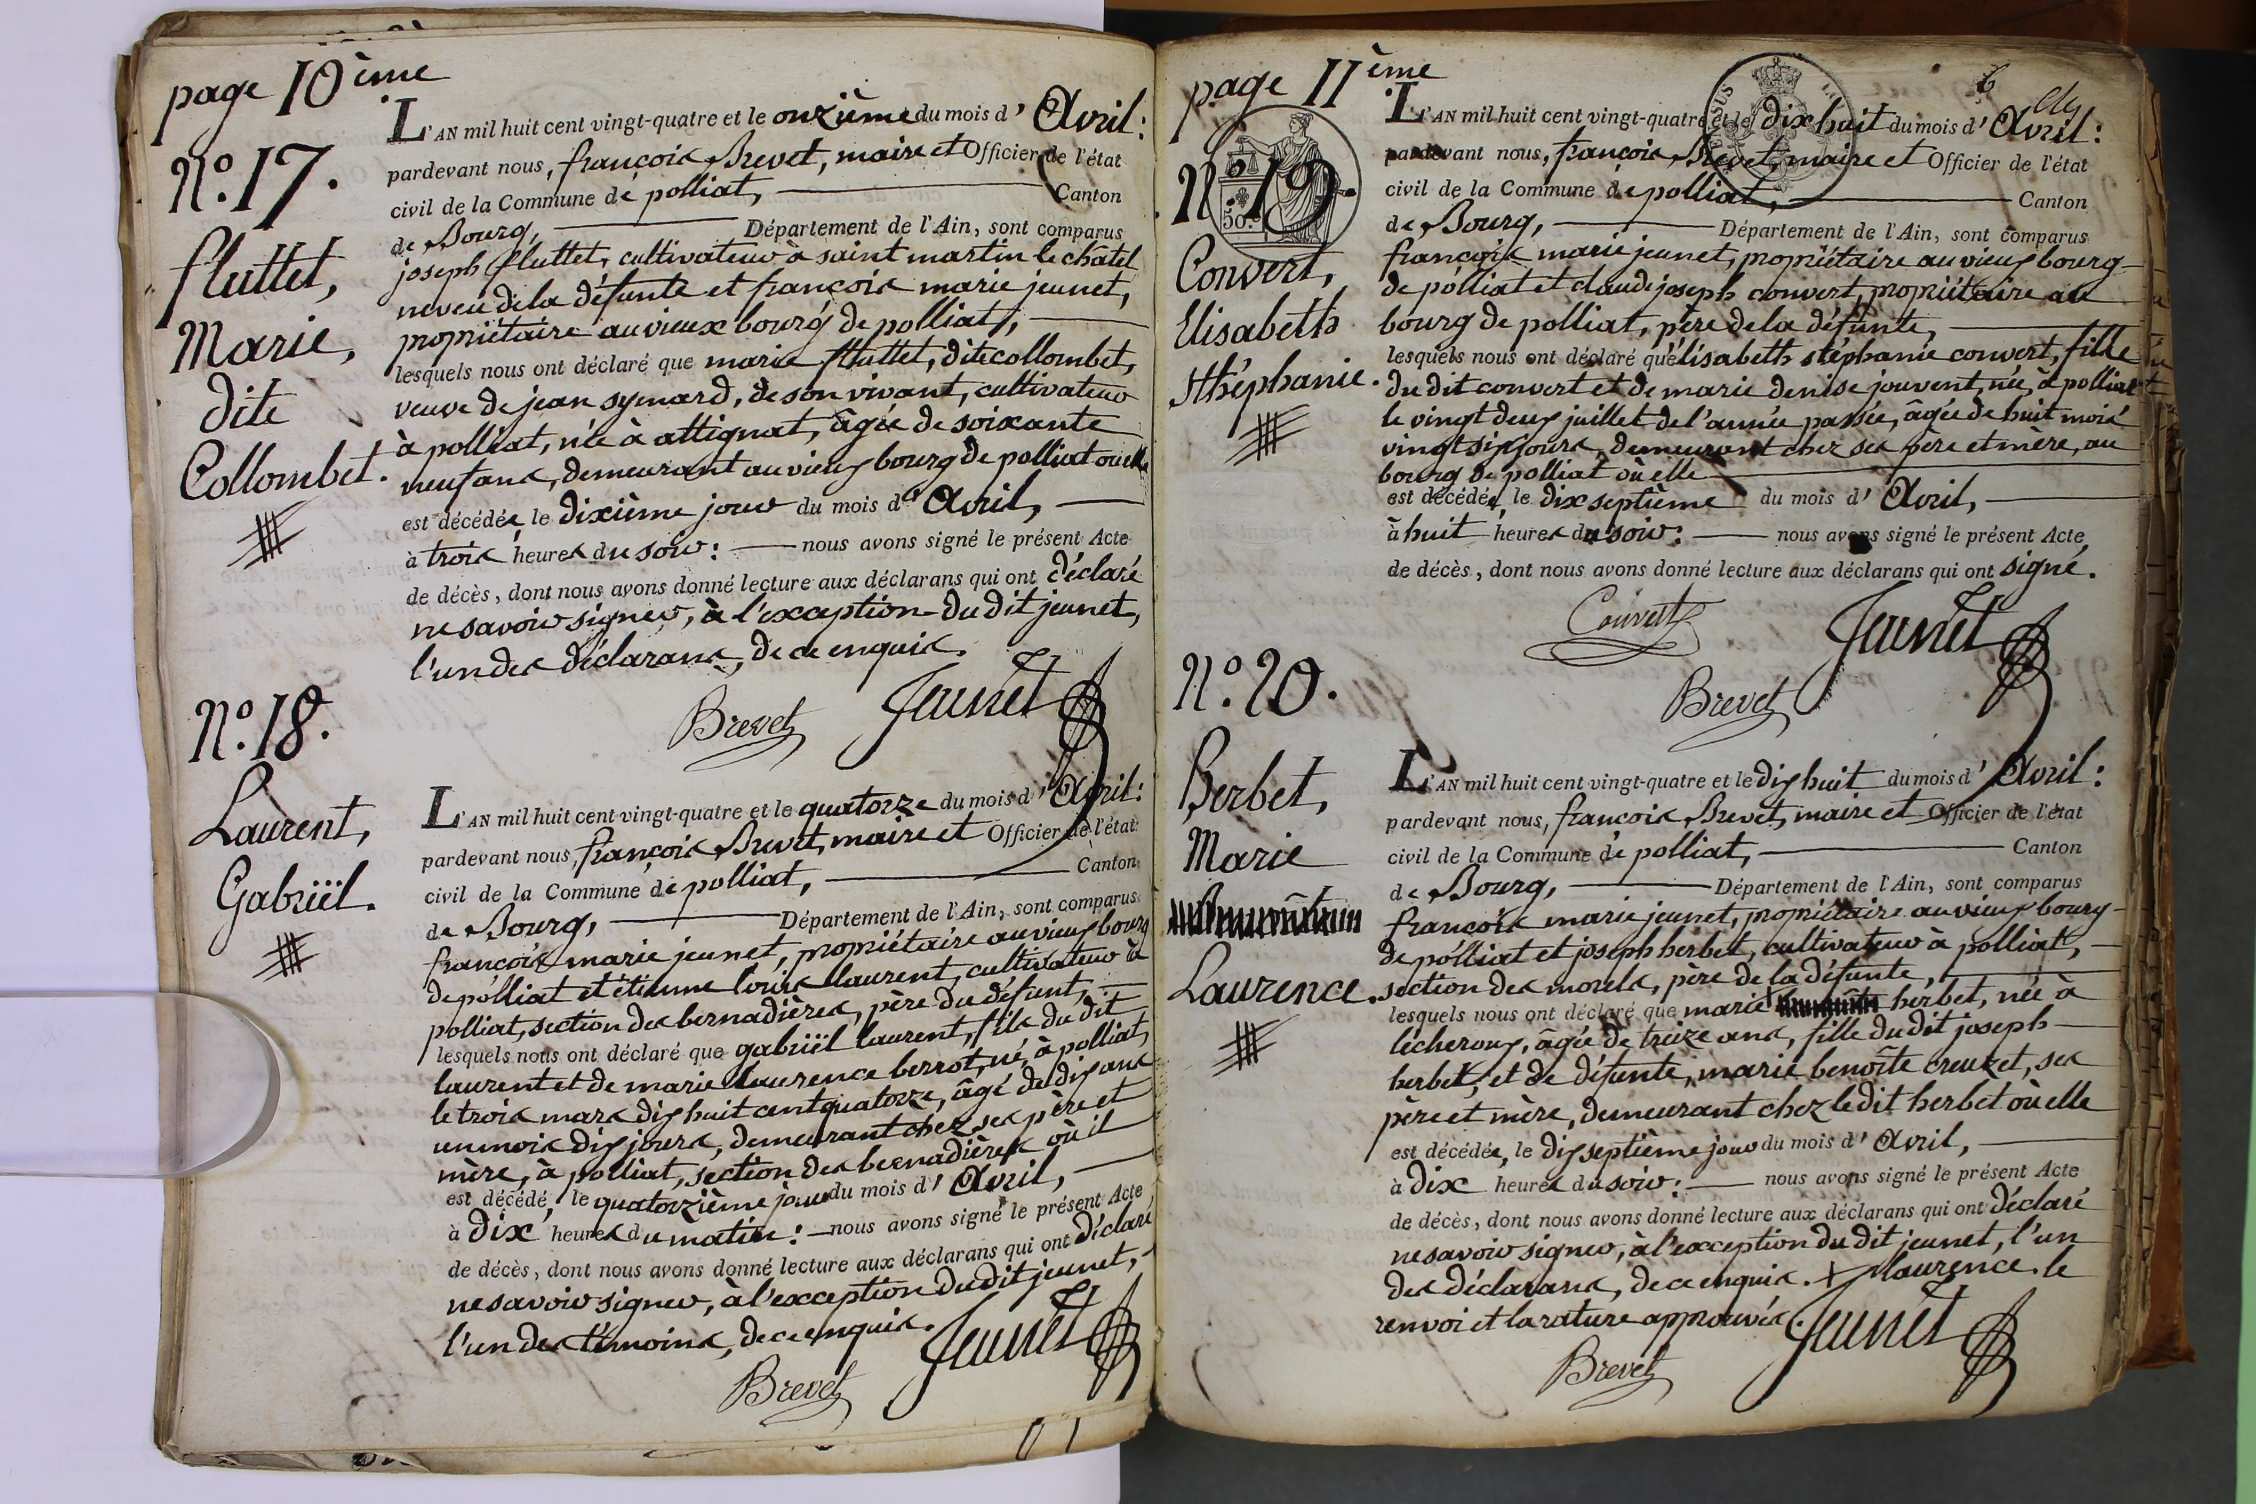 page 10ème
L'AN mil huit cent vingt-quatre et le onzième du mois d'Avril:
pardevant nous, françois Brevet, maire et Officier de l'état
civil de la Commune de polliat, Canton
de Bourg, Département de l'Ain, sont comparus
joseph fluttet, cultivateur à saint martin le châtel
neveu de la défunte et françois marie jeunet,
propriétaire au vieux bourg de polliat,
lesquels nous ont déclaré que marie fluttet, dite collombet,
veuve de jean symard, de son vivant, cultivateur
à polliat, née à attignat, âgée de soixante
neuf ans, demeurant au vieux bourg de polliat où elle
est décédée, le dixième jour du mois d'Avril,
à trois heures du soir: nous avons signé le présent Acte
de décès, dont nous avons donné lecture aux déclarans qui ont déclaré
ne savoir signer, à l'exception du dit jeunet,
l'un des déclarans, de ce enquis.
Brevet Jeunet
No. 17.
fluttet,
Marie,
dite
Collombet.
No. 18.
Laurent,
Gabriël.
L'AN mil huit cent vingt-quatre et le quatorze du mois d'Avril:
pardevant nous, françois Brevet, maire et Officier de l'état
civil de la Commune de polliat, Canton
de Bourg, Département de l'Ain, sont comparus
françois marie jeunet, propriétaire au vieux bourg
de polliat et étienne louis laurent, cultivateur à
polliat, section des bernadières, père du défunt,
lesquels nous ont déclaré que gabriël laurent, fils du dit
laurent et de marie laurence berrot, né à polliat,
le trois mars dix huit cent quatorze, âgé de dix ans
un mois dix jours, demeurant chez ses père et
mère, à polliat, section des bernadières où il
est décédé, le quatorzième jour du mois d'Avril,
à dix heures du matin: nous avons signé le présent Acte
de décès, dont nous avons donné lecture aux déclarans qui ont déclaré
ne savoir signer, à l'exception du dit jeunet,
l'un des témoins, de ce enquis.
Brevet Jeunet
page 11ème
6
No. 19.
50.c
Convert,
Elisabeth
sthéphanie.
L'AN mil huit cent vingt-quatre et le dix huit du mois d'Avril:
pardevant nous, françois Brevet, maire et Officier de l'état
civil de la Commune de polliat, Canton
de Bourg, Département de l'Ain, sont comparus
françois marie jeunet, propriétaire au vieux bourg
de polliat et claude joseph convert, propriétaire au
bourg de polliat, père de la défunte,
lesquels nous ont déclaré qu'élisabeth stéphanie convert, fille
du dit convert et de marie denise jouvent, née, à polliat
le vingt deux juillet de l'année passée, âgée de huit mois
vingt six jours, demeurant chez ses père et mère, au
bourg de polliat où elle
est décédée, le dix septième du mois d'Avril,
à huit heures du soir: nous avons signé le présent Acte
de décès, dont nous avons donné lecture aux déclarans qui ont signé.
Convert Jeunet
Brevet
No. 20.
Berbet,
Marie
Laurence.
L'AN mil huit cent vingt-quatre et le dix huit du mois d'Avril:
pardevant nous, françois Brevet, maire et Officier de l'état
civil de la Commune de polliat, Canton
de Bourg, Département de l'Ain, sont comparus
françois marie jeunet, propriétaire au vieux bourg
de polliat et joseph berbet, cultivateur à polliat,
section des morels, père de la défunte,
lesquels nous ont déclaré que marie berbet, née à
lécheroux, âgée de treize ans, fille du dit joseph
berbet, et de défunte, marie benoîte creuzet, ses
père et mère, demeurant chez le dit berbet où elle
est décédée, le dix septième jour du mois d'Avril,
à dix heures du soir: nous avons signé le présent Acte
de décès, dont nous avons donné lecture aux déclarans qui ont déclaré
ne savoir signer, à l'exception du dit jeunet, l'un
des déclarans, de ce enquis. + laurence. le
renvoi et la rature approuvés.
Brevet Jeunet